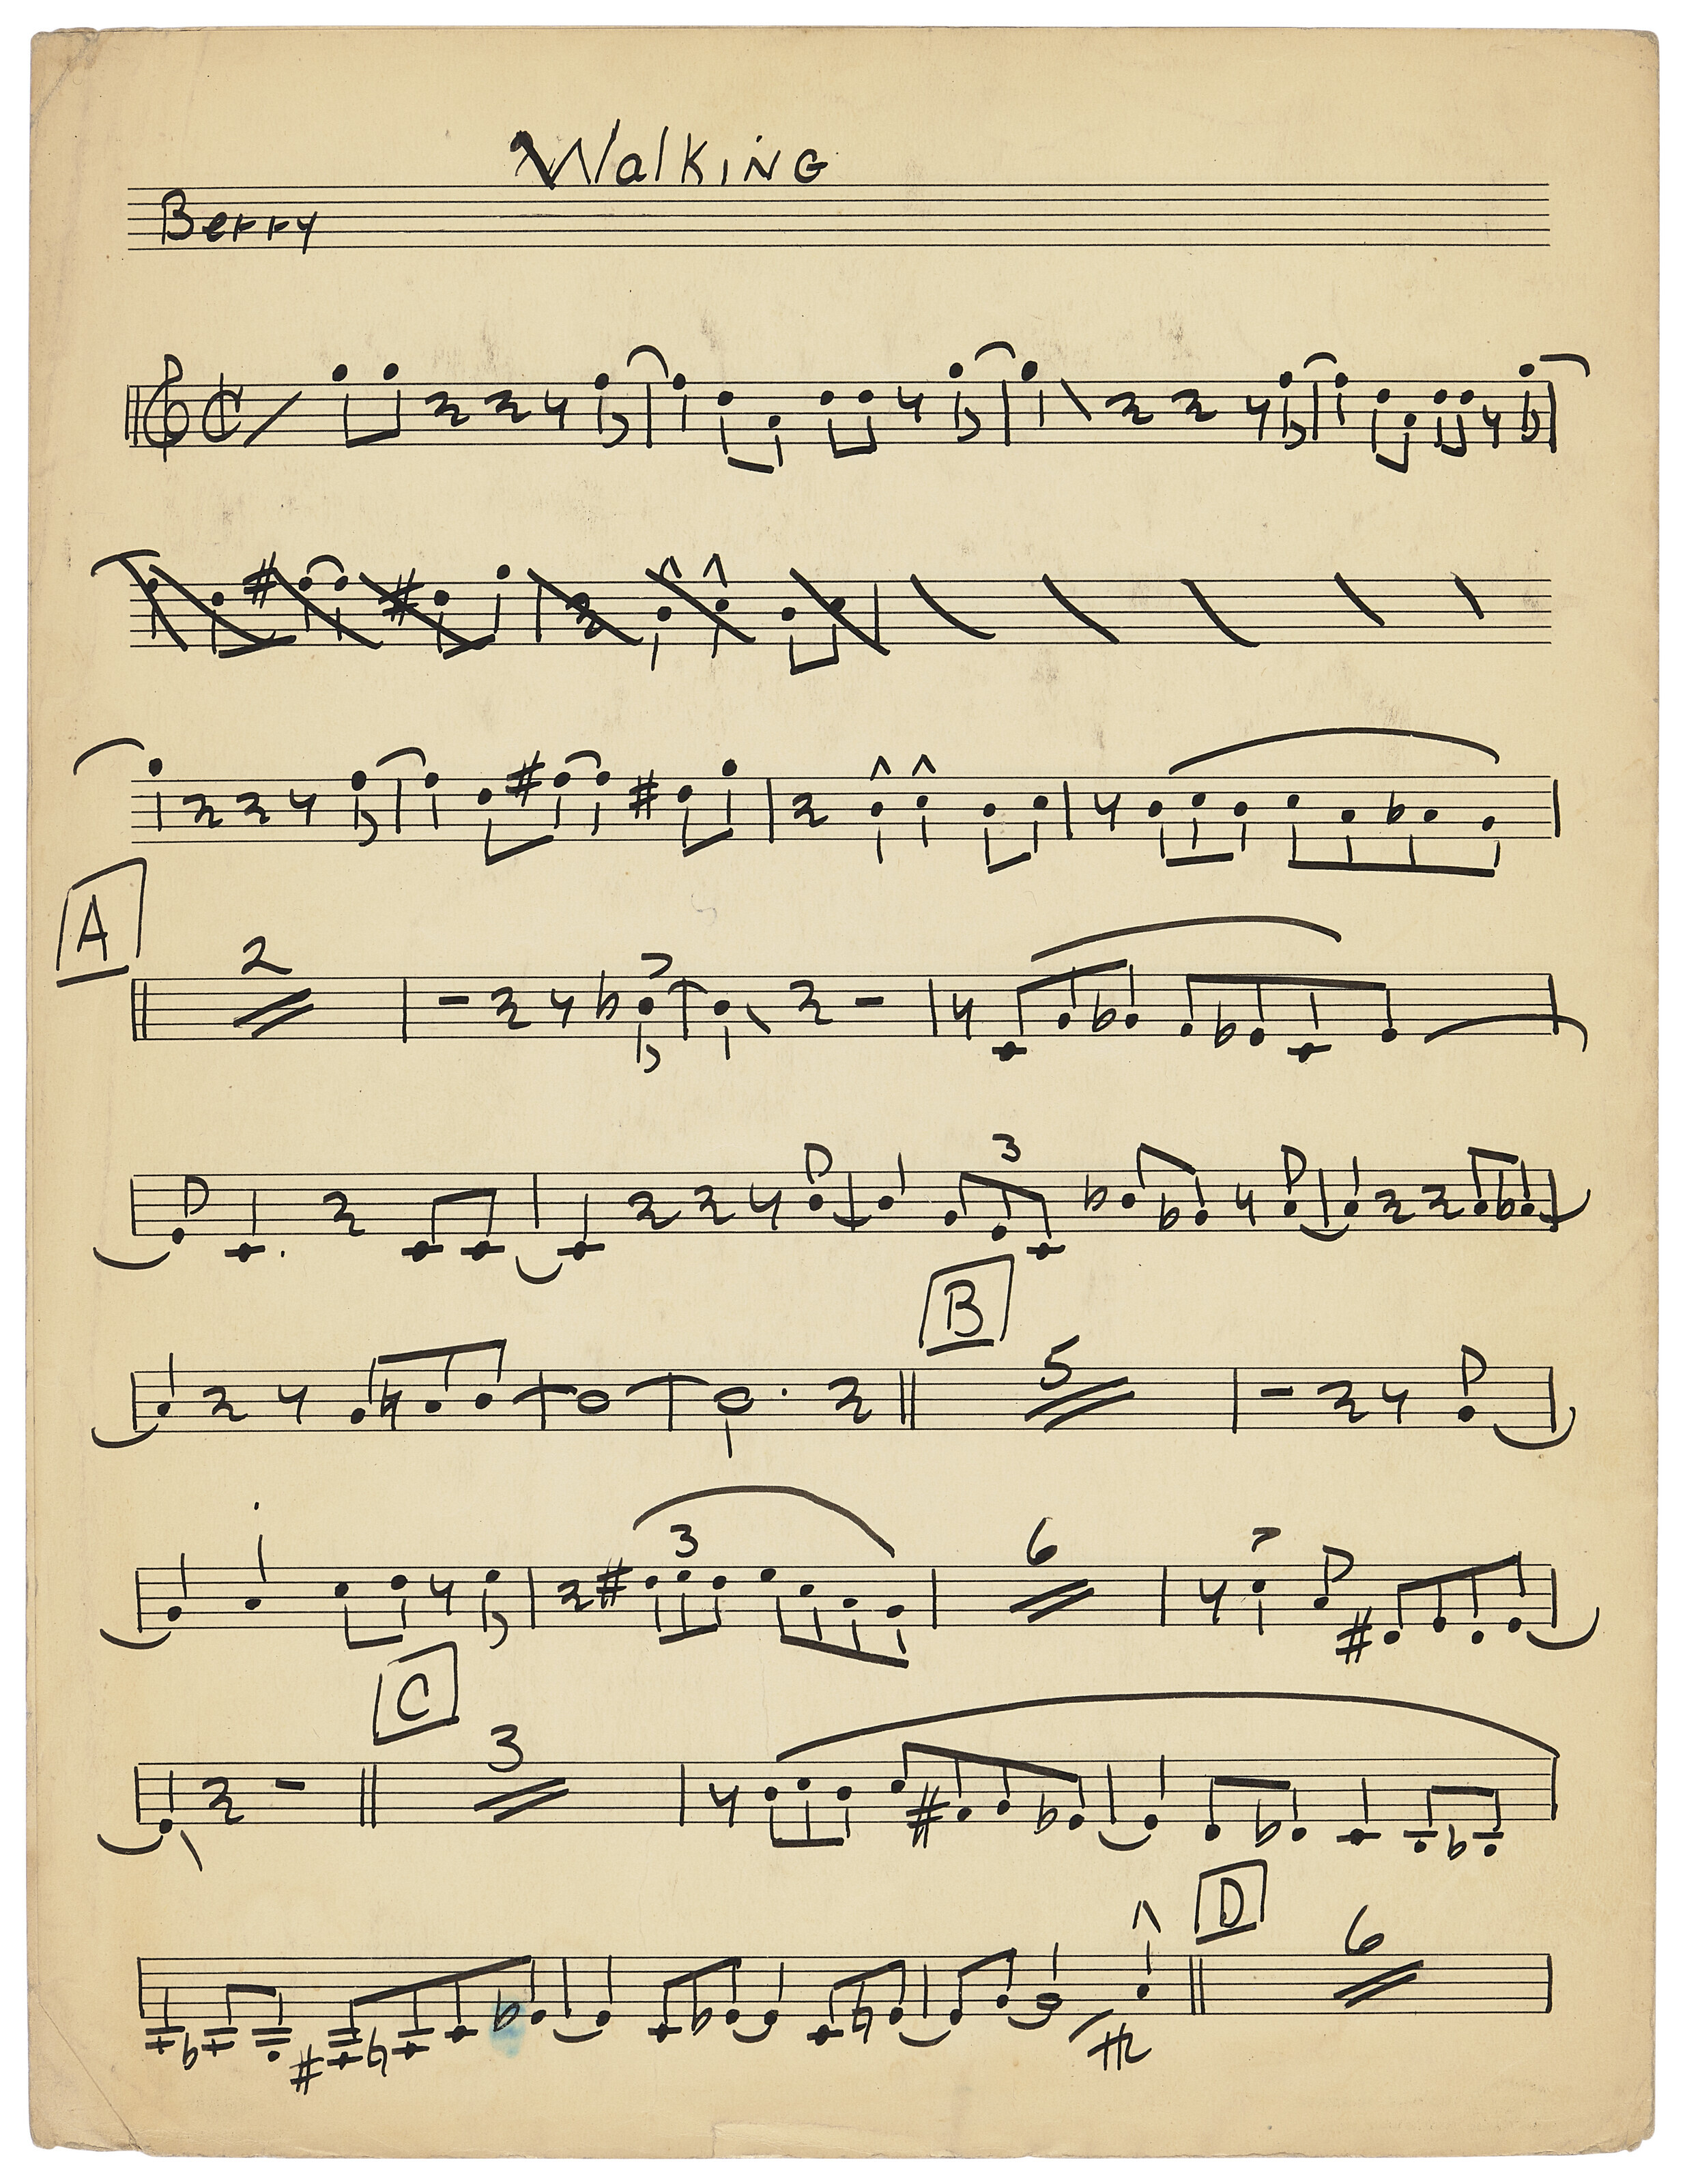 Walking
Berry
A
2
3
B
5
3
6
C
3
D
6